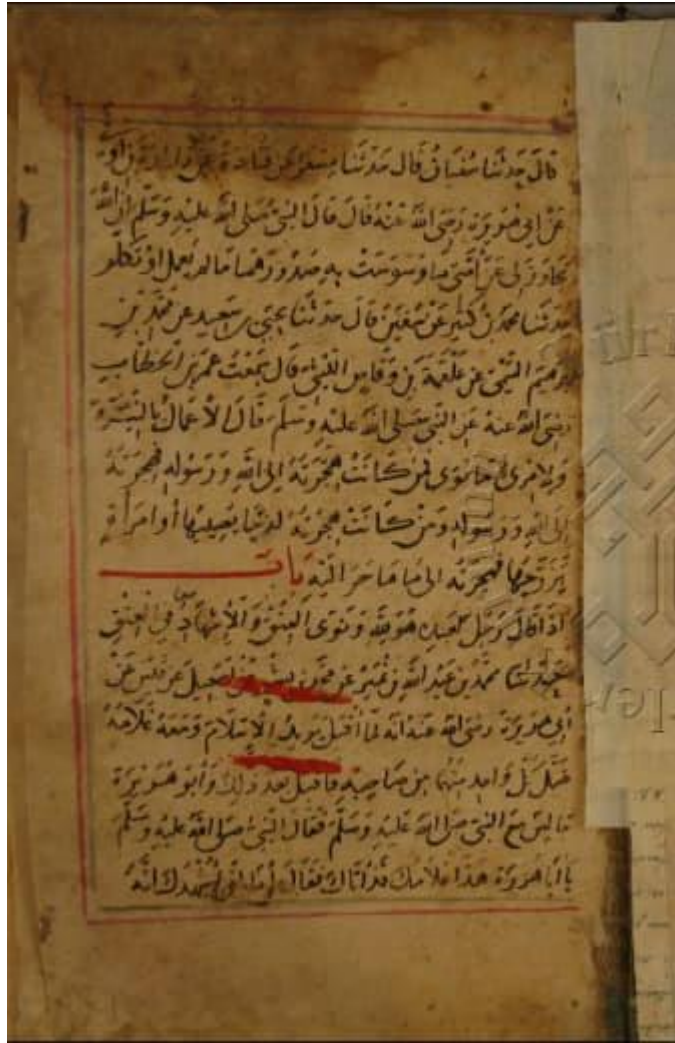 قال حدثنا سفيان قال حدثنا مسعر عن قتادة عن زرارة بن اوفى
عن ابي هريرة رضى الله عنه قال قال النبي صلى الله عليه وسلم ان الله
تجاوز لى عن امتى ما وسوست به صدورها ما لم تعمل او تكلم
حدثنا محمد بن كثير عن سفين قال حدثنا يحيى بن سعيد عن محمد بن
ابرهيم التيمى عن علقمة بن وقاص الليثى قال سمعت عمر بن الخطاب
رضى الله عنه عن النبي صلى الله عليه وسلم قال الاعمال بالنية
ولامرئ ما نوى فمن كانت هجرته الى الله ورسوله فهجرته
الى الله ورسوله ومن كانت هجرته لدنيا يصيبها أو امرأة
يتزوجها فهجرته الى ما هاجر اليه باب
اذا قال رجل لعبده هو لله ونوى العتق والاشهاد في العتق
حدثنا محمد بن عبد الله بن نمير عن محمد بن بشر عن اسمعيل عن قيس عن
أبي هريرة رضى الله عنه انه لما أقبل يريد الاسلام ومعه غلامه
ضل كل واحد منهما من صاحبه فاقبل بعد ذلك وأبو هريرة
جالس مع النبي صلى الله عليه وسلم فقال النبي صلى الله عليه وسلم
يا أبا هريرة هذا غلامك قد اتاك فقال أما انى اشهدك انه